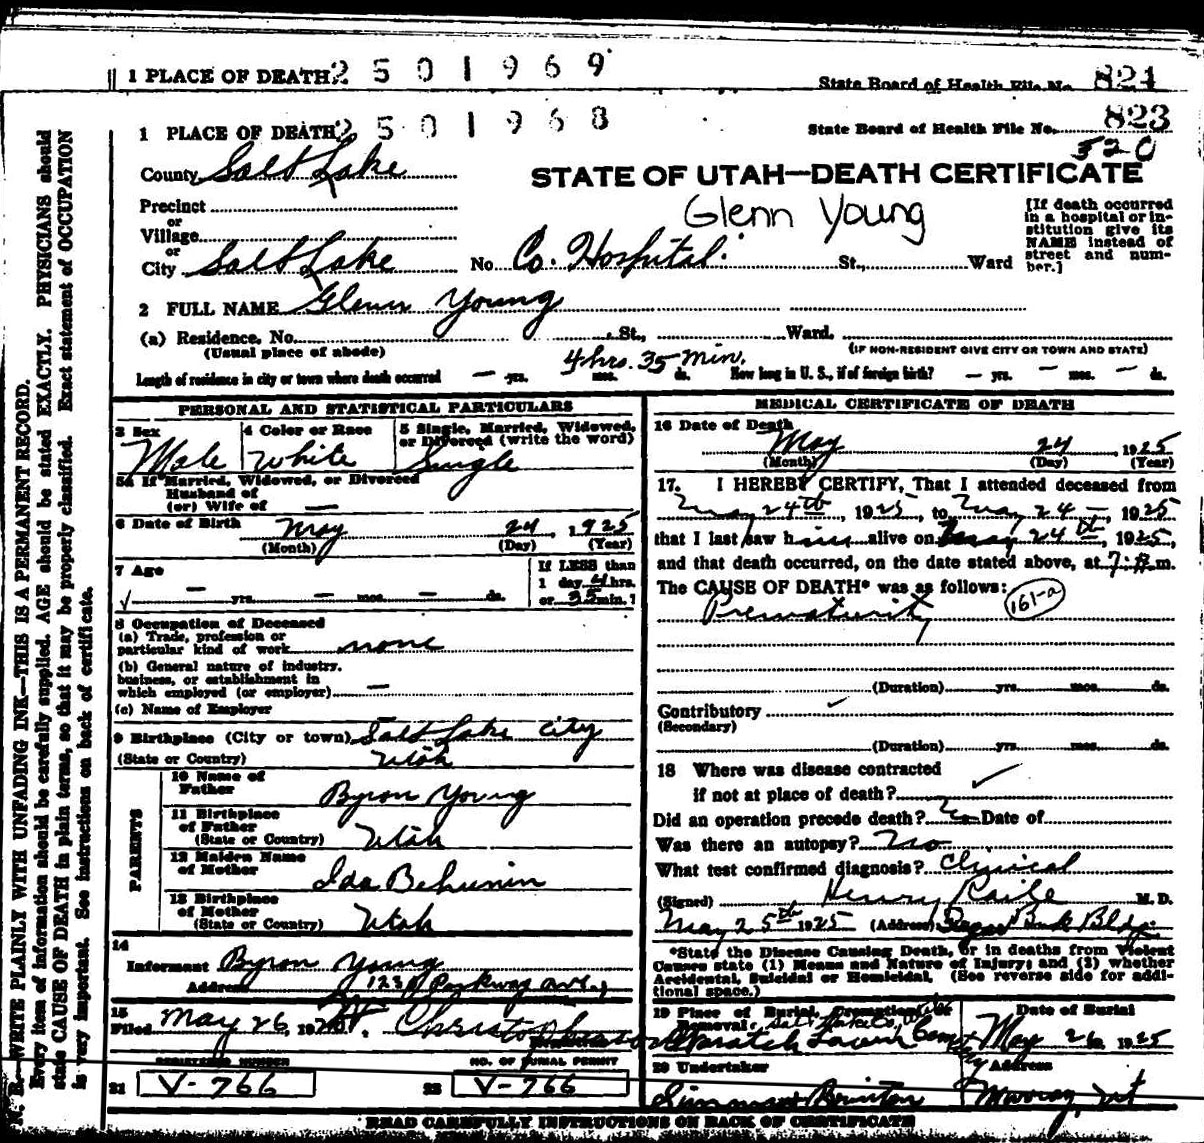 1 PLACE OF DEATH 2 5 0 1 9 6 9 State Board of Health File No. 824
1 PLACE OF DEATH 2 5 0 1 9 6 8 State Board of Health File No. 823
520
County Salt Lake
STATE OF UTAH—DEATH CERTIFICATE
Precinct
Glenn Young
or
Village
or
City Salt Lake No. Co. Hospital. St., Ward
[If death occurred
in a hospital or in-
stitution give its
NAME instead of
street and num-
ber.]
2 FULL NAME Glenn Young
(a) Residence. No. St., Ward.
(Usual place of abode) (IF NON-RESIDENT GIVE CITY OR TOWN AND STATE)
4 hrs. 35 min.
Length of residence in city or town where death occurred — yrs. mos. ds. How long in U. S., if of foreign birth? — yrs. — mos. — ds.
N. B.—WRITE PLAINLY WITH UNFADING INK—THIS IS A PERMANENT RECORD.
Every item of information should be carefully supplied. AGE should be stated EXACTLY. PHYSICIANS should
state CAUSE OF DEATH in plain terms, so that it may be properly classified. Exact statement of OCCUPATION
is very important. See instructions on back of certificate.
PERSONAL AND STATISTICAL PARTICULARS
3 Sex
Male
4 Color or Race
White
5 Single, Married, Widowed,
or Divorced (write the word)
Single
5a If Married, Widowed, or Divorced
Husband of
(or) Wife of —
6 Date of Birth
May 24, 1925
(Month) (Day) (Year)
7 Age
— yrs. — mos. — ds.
If LESS than
1 day 4 hrs.
or 35 min. ?
8 Occupation of Deceased
(a) Trade, profession or
particular kind of work none
(b) General nature of industry.
business, or establishment in
which employed (or employer) —
(c) Name of Employer
9 Birthplace (City or town) Salt Lake City
(State or Country) Utah
PARENTS
10 Name of
Father Byron Young
11 Birthplace
of Father
(State or Country) Utah
12 Maiden Name
of Mother Ida Behunin
13 Birthplace
of Mother
(State or Country) Utah
14
Informant Byron Young
Address 1230 Parkway ave.,
15
Filed May 26, 19
REGISTERED NUMBER NO. OF BURIAL PERMIT
21 V-766 22 V-766
MEDICAL CERTIFICATE OF DEATH
16 Date of Death
May 24, 1925
(Month) (Day) (Year)
17. I HEREBY CERTIFY, That I attended deceased from
May 24th, 1925, to May 24, 1925
that I last saw him alive on May 24th, 1925,
and that death occurred, on the date stated above, at 7: m.
The CAUSE OF DEATH* was as follows:
Prematurity 161-a
(Duration) yrs. mos. ds.
Contributory
(Secondary)
(Duration) yrs. mos. ds.
18 Where was disease contracted
if not at place of death?
Did an operation precede death? No Date of
Was there an autopsy? No
What test confirmed diagnosis? Clinical
(Signed) Henry Raile M. D.
May 25th 1925 (Address) Bank Bldg.
*State the Disease Causing Death, or in deaths from Violent
Causes state (1) Means and Nature of Injury; and (2) whether
Accidental, Suicidal or Homicidal. (See reverse side for addi-
tional space.)
19 Place of Burial, Cremation or
Removal: Salt Lake Co.
Wasatch Lawn Cemetery
Date of Burial
May 26 1925
20 Undertaker
Address
Murray, Ut
READ CAREFULLY INSTRUCTIONS ON BACK OF CERTIFICATE